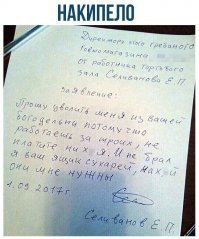 НАКИПЕЛО
Директору этого гребаного
гоёмомагазина
от работника торгового
зала Селиванова Е. П.
заявление:
Прошу уволить меня из вашей
богодельни потому что
работаешь за троих, не
платите ни х я. И не брал
я ваш ящик сухарей, нах й
они мне нужны
1.09.2017г.
Селиванов Е. П.